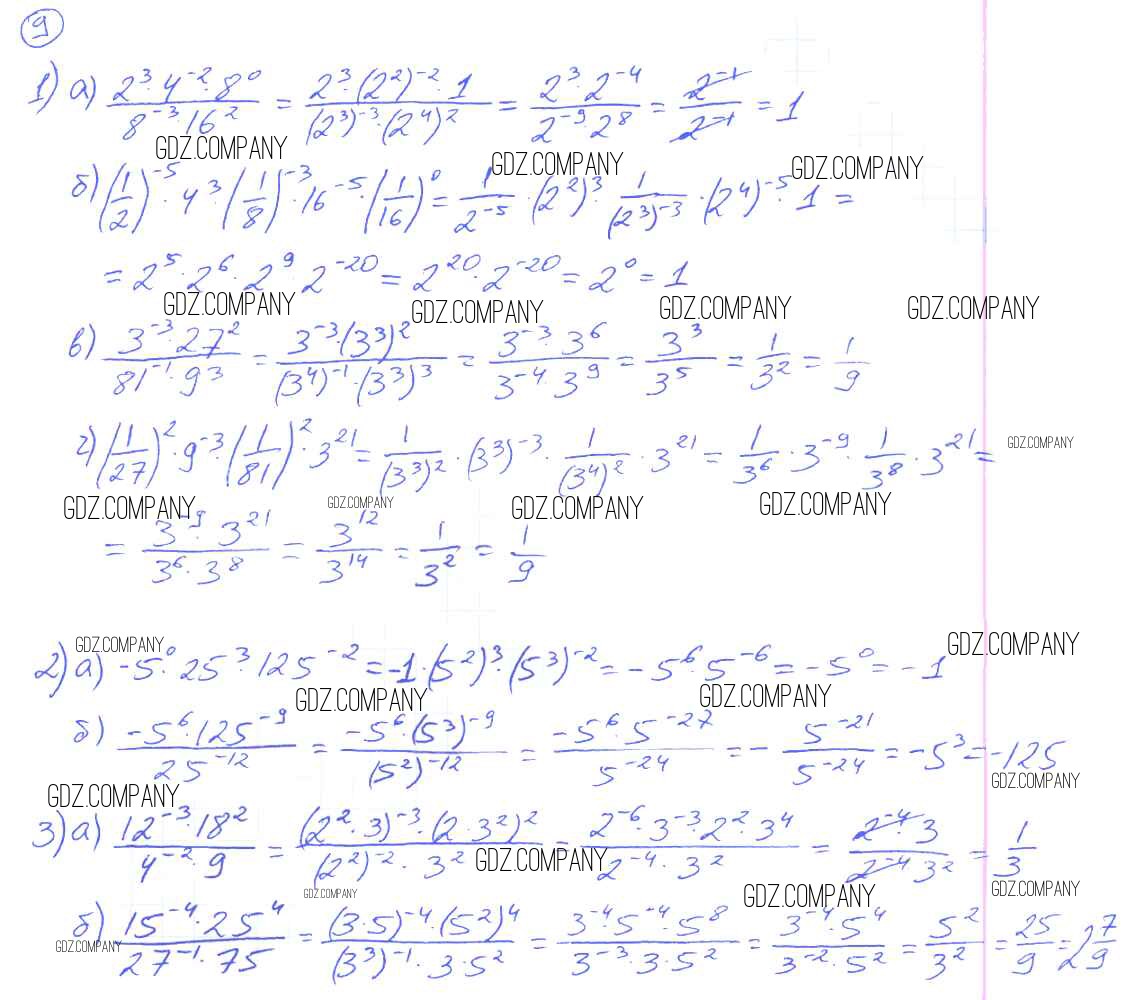 9
1) а) (2³·4⁻²·8⁰)/(8⁻³·16²) = (2³·(2²)⁻²·1)/((2³)⁻³·(2⁴)²) = (2³·2⁻⁴)/(2⁻⁹·2⁸) = 2⁻¹/2⁻¹ = 1
GDZ.COMPANY GDZ.COMPANY GDZ.COMPANY
б) (1/2)⁻⁵·4³·(1/8)⁻³·16⁻⁵·(1/16)⁰ = 1/2⁻⁵·(2²)³·1/(2³)⁻³·(2⁴)⁻⁵·1 =
= 2⁵·2⁶·2⁹·2⁻²⁰ = 2²⁰·2⁻²⁰ = 2⁰ = 1
GDZ.COMPANY GDZ.COMPANY GDZ.COMPANY GDZ.COMPANY
в) (3⁻³·27²)/(81⁻¹·9³) = (3⁻³·(3³)²)/((3⁴)⁻¹·(3³)³) = (3⁻³·3⁶)/(3⁻⁴·3⁹) = 3³/3⁵ = 1/3² = 1/9
г) (1/27)²·9⁻³·(1/81)²·3²¹ = 1/(3³)²·(3³)⁻³·1/(3⁴)²·3²¹ = 1/3⁶·3⁻⁹·1/3⁸·3²¹ =
GDZ.COMPANY
GDZ.COMPANY GDZ.COMPANY GDZ.COMPANY GDZ.COMPANY
= (3⁻⁹·3²¹)/(3⁶·3⁸) = 3¹²/3¹⁴ = 1/3² = 1/9
GDZ.COMPANY GDZ.COMPANY
2) а) -5⁰·25³·125⁻² = -1·(5²)³·(5³)⁻² = -5⁶·5⁻⁶ = -5⁰ = -1
GDZ.COMPANY GDZ.COMPANY
б) (-5⁶·125⁻⁹)/25⁻¹² = (-5⁶·(5³)⁻⁹)/(5²)⁻¹² = (-5⁶·5⁻²⁷)/5⁻²⁴ = - 5⁻²¹/5⁻²⁴ = -5³ = -125
GDZ.COMPANY GDZ.COMPANY
3) а) (12⁻³·18²)/(4⁻²·9) = ((2²·3)⁻³·(2·3²)²)/((2²)⁻²·3²) = (2⁻⁶·3⁻³·2²·3⁴)/(2⁻⁴·3²) = (2⁻⁴·3)/(2⁻⁴·3²) = 1/3
GDZ.COMPANY GDZ.COMPANY GDZ.COMPANY GDZ.COMPANY
б) (15⁻⁴·25⁴)/(27⁻¹·75) = ((3·5)⁻⁴·(5²)⁴)/((3³)⁻¹·3·5²) = (3⁻⁴·5⁻⁴·5⁸)/(3⁻³·3·5²) = (3⁻⁴·5⁴)/(3⁻²·5²) = 5²/3² = 25/9 = 2 7/9
GDZ.COMPANY